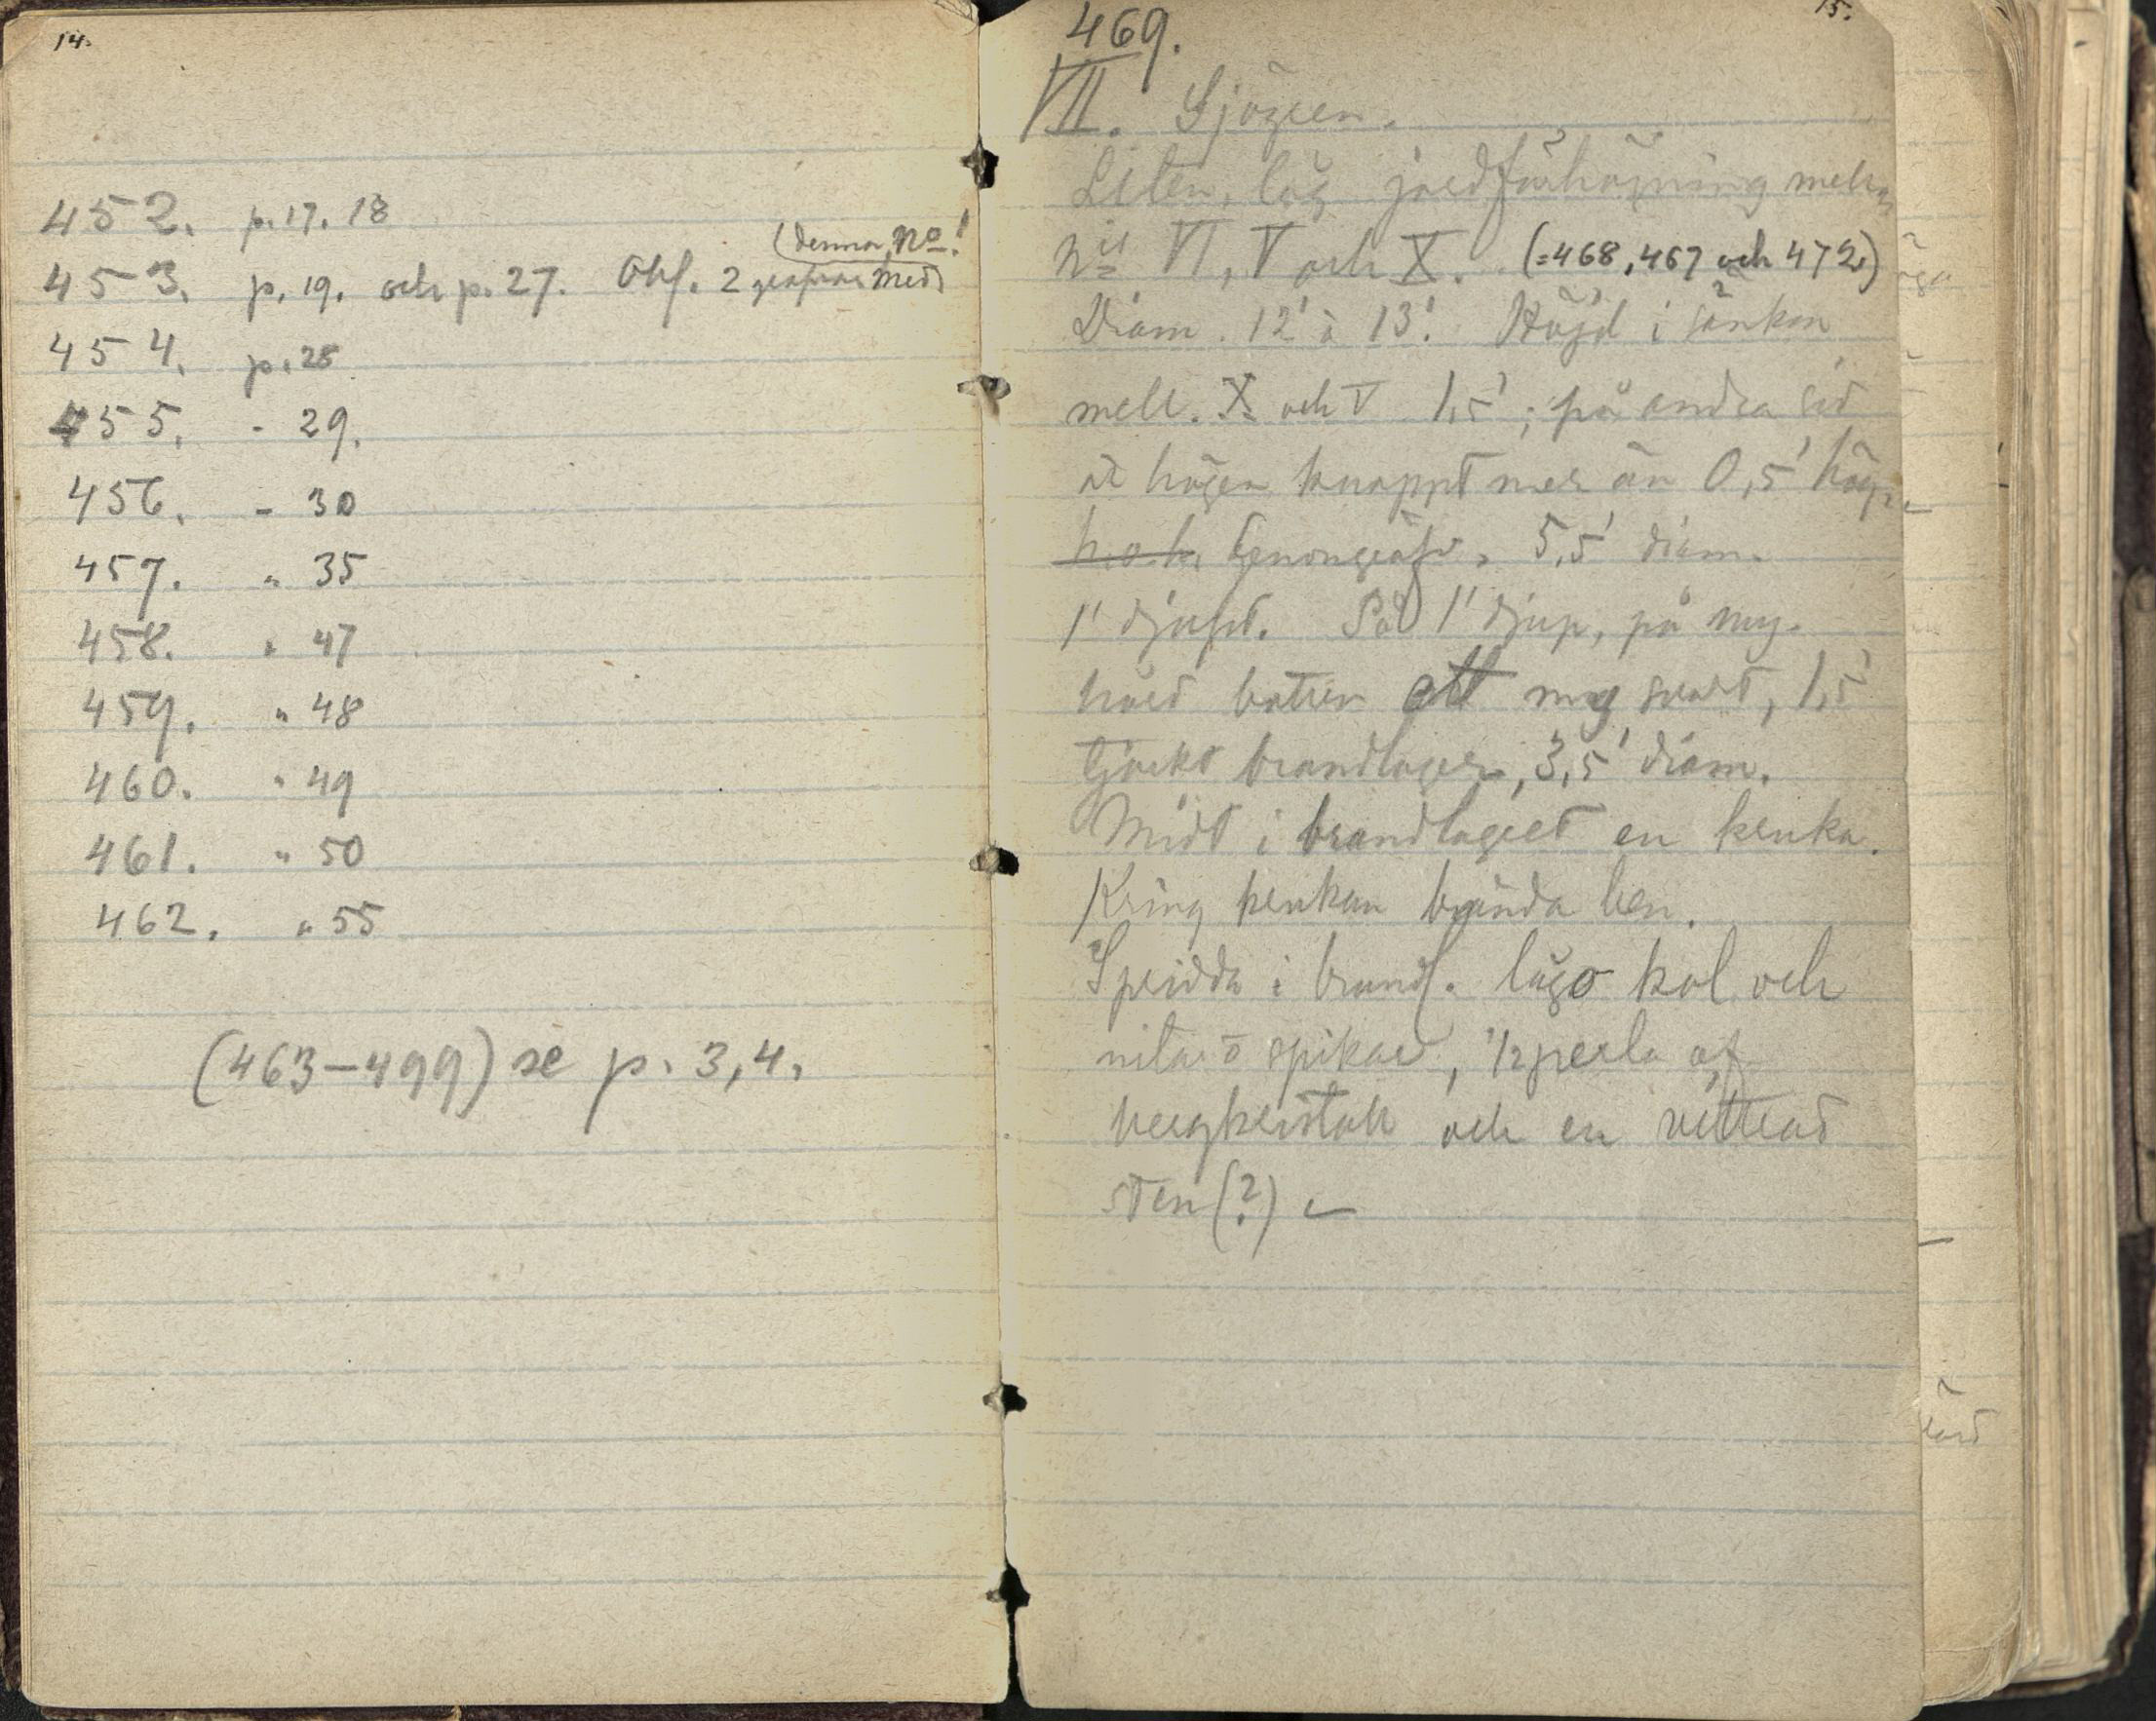 14.
452. p. 17. 18
(denna No!
453. p. 19. och p. 27. Obs. 2 grafvar med
454. p. 28
455. - 29.
456. - 30
457. " 35
458. " 47
459. " 48
460. " 49
461. " 50
462. " 55
(463-499) se p. 3,4.
15.
469.
VII. Sjögren.
Liten, låg jordförhöjning mellan
Nris VI, V och X. (=468, 467 och 472)
Diam. 12' à 13'. Höjd i sänkan
mell. X och V 1,5'; på andra sid
är högen knappt mer än 0,5' hög.
Genomgräfd, 5,5' diam.
1' djupt. På 1' djup, på myc.
hård botten ett myc svart, 1,5'
tjockt brandlager, 3,5' diam.
Midt i brandlagret en kruka.
Kring krukan brända ben.
Spridda i brandl. lågo kol och
nitar o spikar, 1/2 perla af
bergkristall och en vittrad
sten (?)